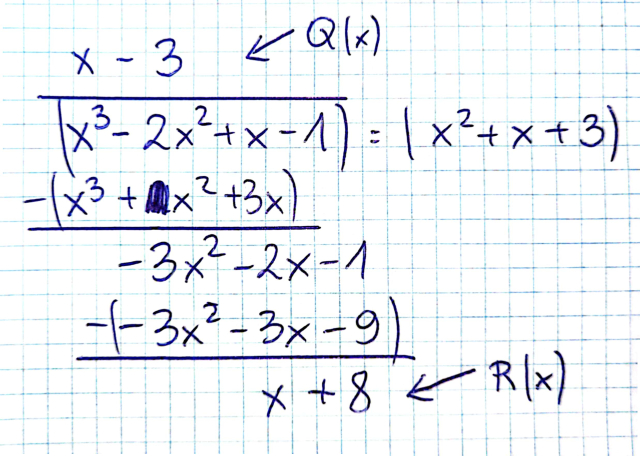 x - 3 ← Q(x)
(x³ - 2x² + x - 1) = (x² + x + 3)
-(x³ + x² + 3x)
-3x² - 2x - 1
-(-3x² - 3x - 9)
x + 8 ← R(x)